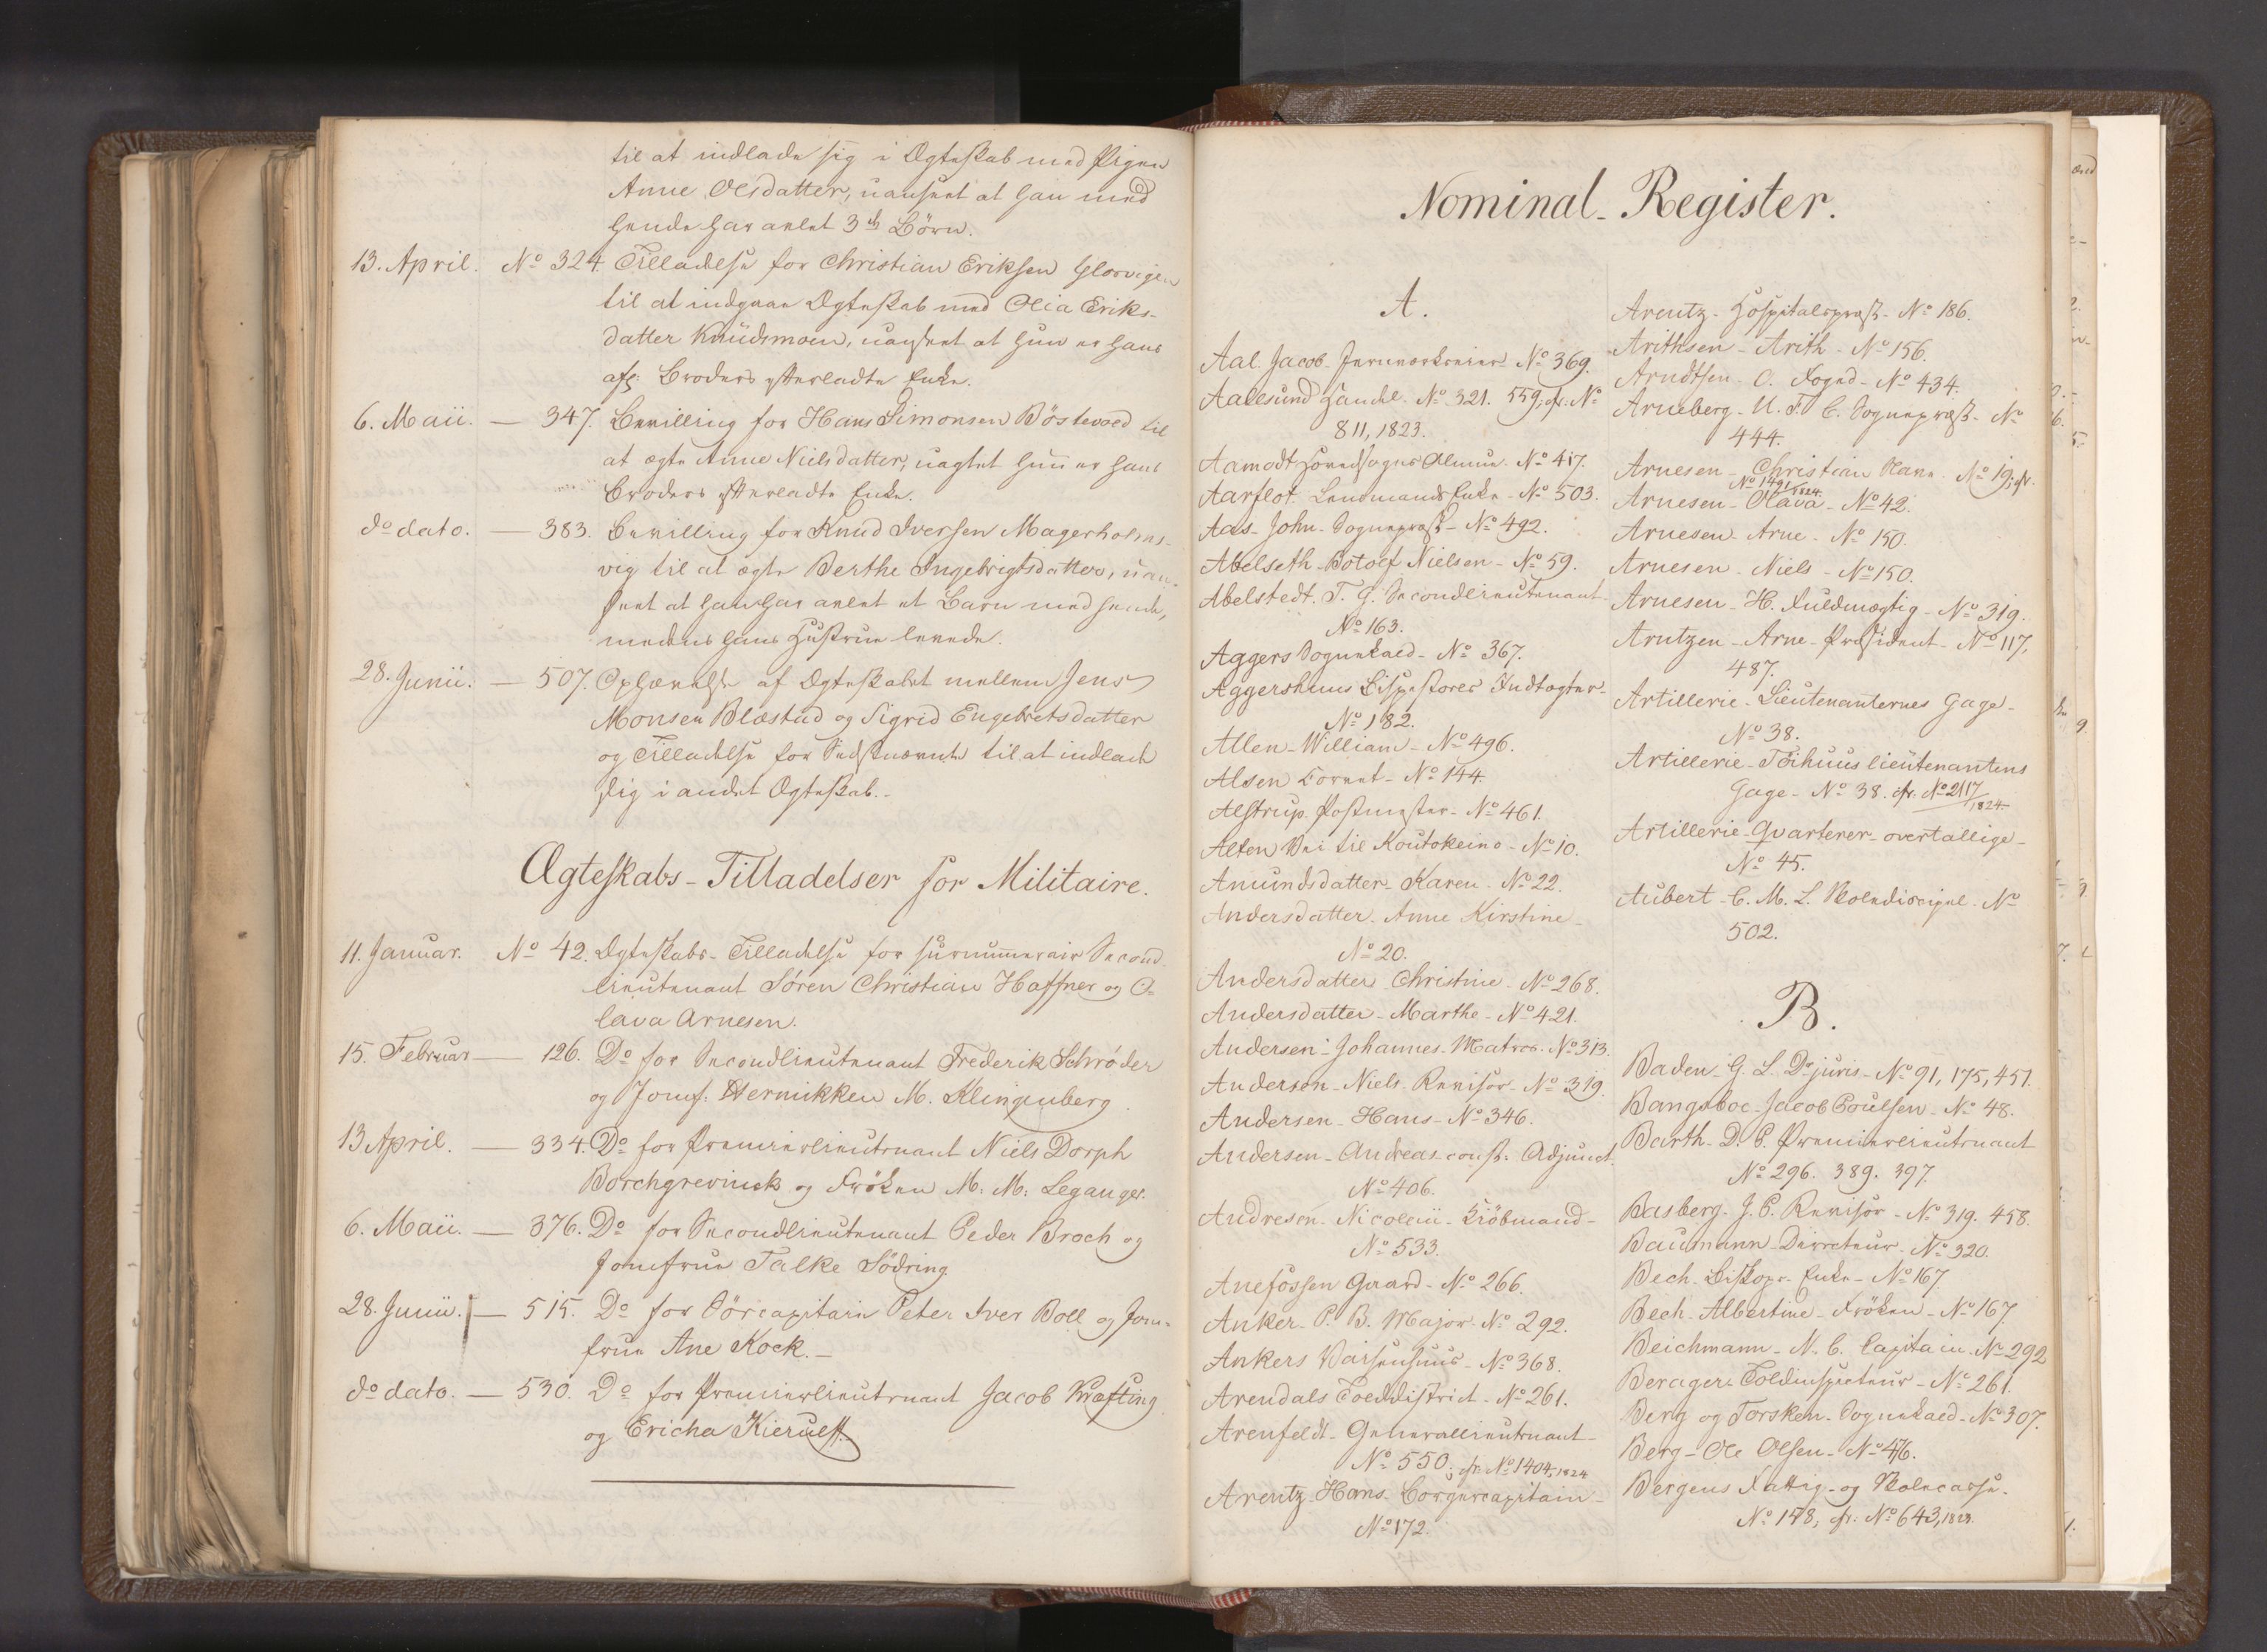 til at indlade sig i Ægteskab med Pigen
Anne Olsdatter, uanseet at han med
hende har avlet 3de Börn.
13. April. No 324. Tilladelse for Christian Eriksen Glorvigen
til at indgaae Ægteskab med Olia Eriks-
datter Knudsmoen, uanseet at hun er hans
afg: Broders efterladte Enke.
6. Maii. — 347. Bevilling for Hans Simonsen Böstevold til
at ægte Anne Nielsdatter, uagtet hun er hans
Broders efterladte Enke.
do dato. — 383. Bevilling for Knud Iversen Magerholms-
vig til at ægte Berthe Ingebrigtsdatter, uan-
seet at han har avlet et Barn med hende,
medens hans Hustrue levede.
28. Junii. — 507. Ophævelse af Ægteskabet mellem Jens
Monsen Blæstad og Sigrid Engebretsdatter
og Tilladelse for Sidstnævnte til at indlade
sig i andet Ægteskab.-
Ægteskabs-Tilladelser for Militaire.
11. Januar. No 42. Ægteskabs-Tilladelse for surnumerair Second-
lieutenant Sören Christian Haffner og O-
lava Arnesen.
15. Februar — 126. Do for Secondlieutenant Frederik Schröder
og Jomf: Hermikken M. Klingenberg.
13 April. — 334. Do for Premierlieutenant Niels Dorph
Borchgrevinck og Fröken M: M: Leganger.
6. Maii. — 376. Do for Secondlieutenant Peder Broch og
Jomfrue Talke Södring.
28. Junii. — 515. Do for Börcapitain Peter Iver Boll og Jom-
frue Ane Kock.—
do dato. — 530. Do for Premierlieutenant Jacob Kræfting
og Ericha Kierulff.
Nominal-Register.
A.
Aal. Jacob- Jernværkseier- No 369.
Aalesund Handel- No 321. 559, cfr. No
811, 1823.
Aamodt Hovedsogns Almue. No 417.
Aarflot. Lensmands Enke- No 503.
Aas- John- Sognepræst- No 492.
Abelseth- Botolf Nielsen- No 59.
Abelstedt. T. G. Secondlieutenant-
No 163.
Aggers Sognekald- No 367.
Aggershuus Bispestoels Indtægter-
No 182.
Allen- William- No 496.
Alsen Tornet- No 144.
Alstrup. Postmester- No 461.
Alten Vei til Koutokeino- No 10.
Amundsdatter- Karen. No 22.
Andersdatter. Anne Kirstine-
No 20.
Andersdatter Christine- No 268.
Andersdatter- Marthe- No 421.
Andersen- Johannes- Matros. No 313.
Andersen- Niels- Revisor- No 319.
Andersen- Hans- No 346.
Andersen- Andreas- const. Adjunct.
No 406.
Andresen- Nicolaii- Kiöbmand-
No 533.
Anefossen Gaard- No 266.
Anker- P. B. Major- No 292.
Ankers Vaisenhuus- No 368.
Arendals Tolddistrict- No 261.
Arenfeldt- Generallieutenant-
No 550; cfr. No 1404, 1824
Arentz- Hans- Borgercapitain-
No 172.
Arentz- Hospitalspræst- No 186.
Arithsen- Arith- No 156.
Arndtsen- O. Foged- No 434.
Arneberg- U. F. C. Sognepræst- No
444.
Arnesen- Christian Navn- No 19; cfr.
No 1491/1824.
Arnesen- Olava- No 42.
Arnesen- Arne- No 150.
Arnesen- Niels- No 150.
Arnesen- H. Fuldmægtig- No 319.
Arntzen- Arne- Præsident- No 117,
487.
Artillerie- Lieutenanternes Gage-
No 38.
Artillerie- Töihuuslieutenantens
Gage- No 38. cfr. No 2117/1824.
Artillerie- Qvarterer- overtallige-
No 45.
Aubert- C. M. L. Skoledicipel. No
502.
B.
Baden- G. L. Dr juris- No 91, 175, 451.
Bangsboe- Jacob Poulsen- No 48.
Barth- D. P. Premierlieutenant
No 296. 389. 397.
Basberg- J. P. Revisor- No 319. 458.
Baumann- Directeur- No 320.
Bech- Biskops- Enke- No 167.
Bech- Albertine- Fröken- No 167.
Beichmann- N. C. Capitain- No 292
Berager- Toldinspecteur- No 261.
Berg og Torsken- Sognekald- No 307.
Berg- Ole Olsen- No 476.
Bergens Fattig- og Skolecasse-
No 158, cfr. No 643, 1823.